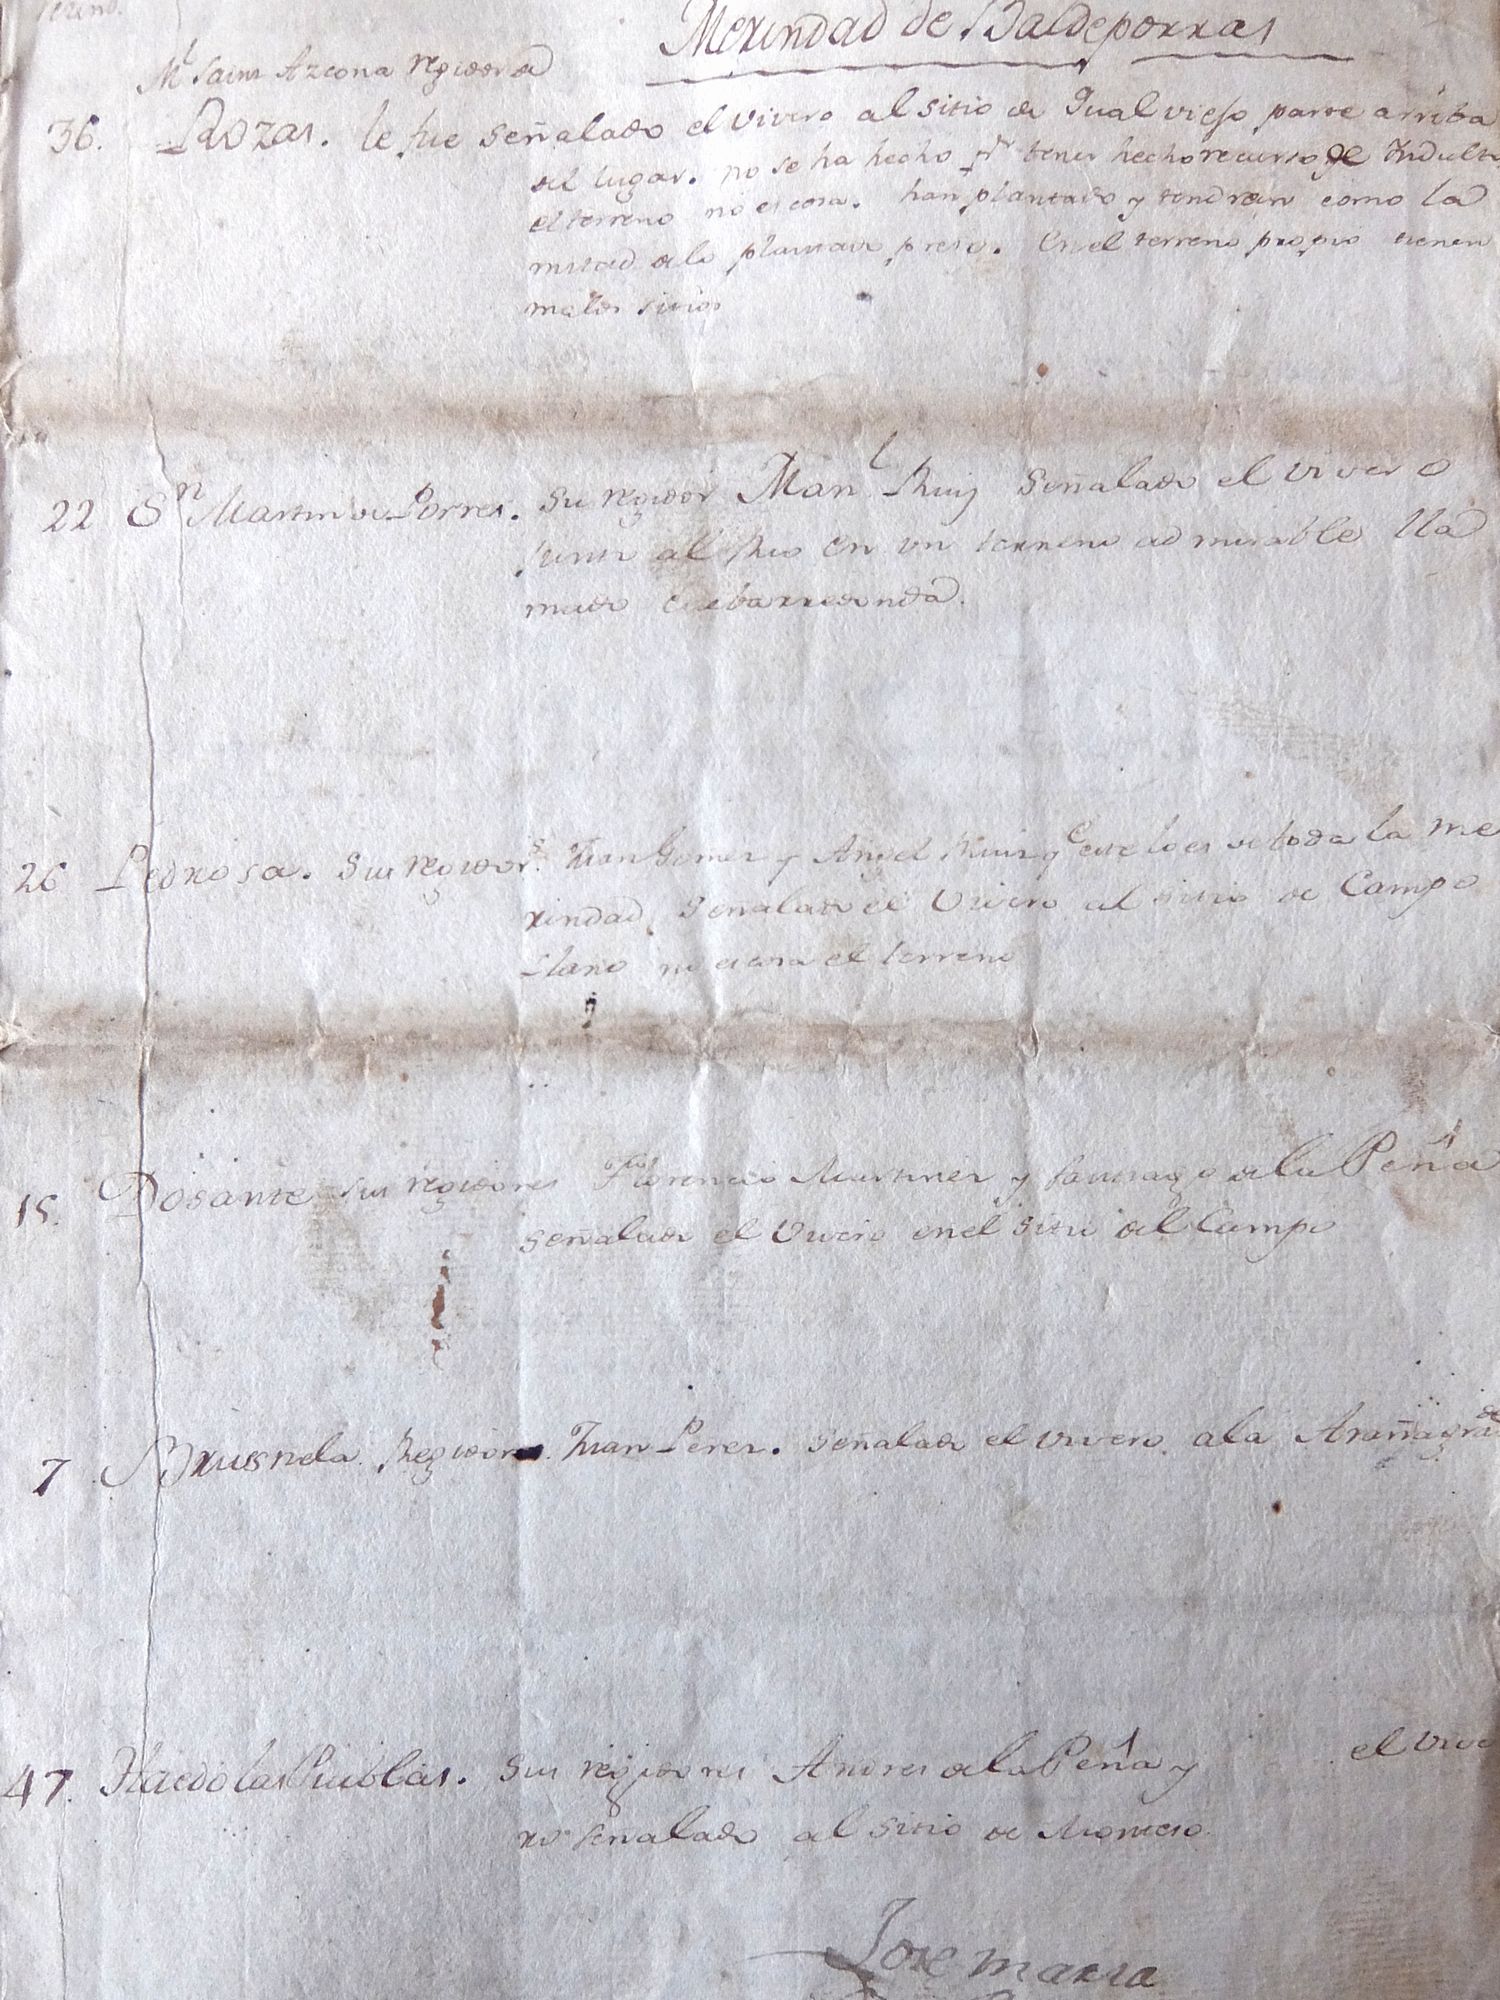 Merindad de Baldeporras
Azcona regidor de
36. Rozas. le fue señalado el vivero al sitio de Gualviejo parte arriba
del lugar. no se ha hecho pr tener hecho recurso de Indulto
el terreno no es cosa. han plantado y tendran como la
mitad de lo plantado preso. En el terreno propio tienen
malos sitios
22 Sn Martin de Porres. Su regidor Manl Ruiz señalado el vivero
junto al Rio en un terreno admirable lla
mado
26 Pedrosa. sus regidors Juan Gomez y Angel Ruiz qe este lo es de toda la me
rindad. señalado el Vivero al sitio de Campo
llano no es cosa el terreno
15. Dosante sus regidores Florencio Martinez y Santiago de la Peña
señalado el Vivero en el sitio del Campo
7 Brusnela. Regidor. Juan Perez. señalado el vivero. a la Arañagrade
47. Haedo las Pueblas. sus regidores Andres de la Peña y el vive
ro señalado al sitio de
Jose maria